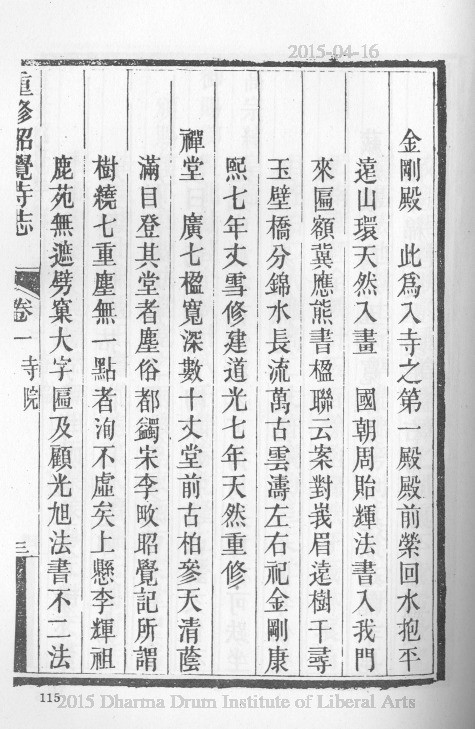 2015-04-16
金剛殿　此爲入寺之第一殿殿前縈回水抱平
遠山環天然入畫　國朝周貽輝法書入我門
來匾額冀應熊書楹聯云案對峩眉遠樹千尋
玉壁橋分錦水長流萬古雲濤左右祀金剛康
熙七年丈雪修建道光七年天然重修
禪堂　廣七楹寬深數十丈堂前古柏參天清蔭
滿目登其堂者塵俗都蠲宋李畋昭覺記所謂
樹繞七重塵無一點者洵不虛矣上懸李輝祖
鹿苑無遮劈窠大字匾及顧光旭法書不二法
重修昭覺寺志
卷一　寺院
三
115
2015 Dharma Drum Institute of Liberal Arts